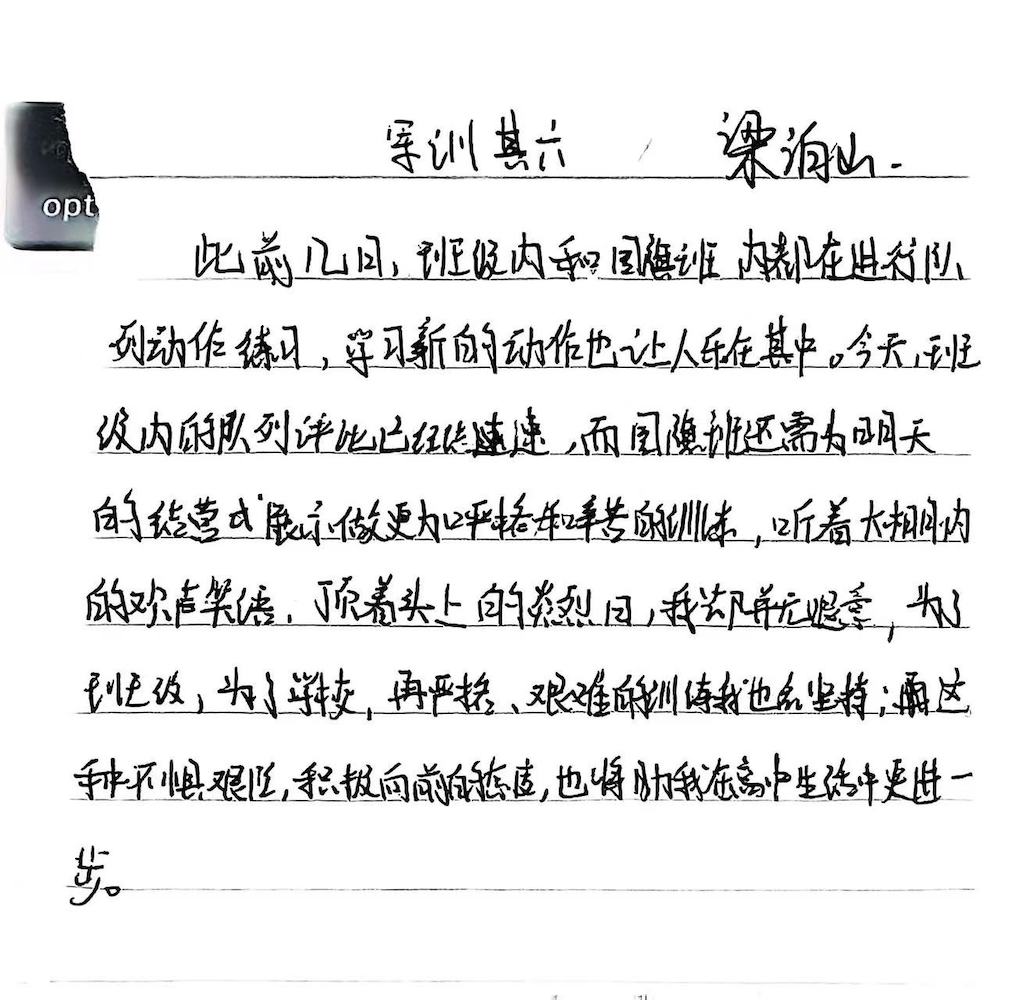 军训其六 梁泊山.
opt
此前几日,班级内和国旗班内都在进行队
列动作练习,学习新的动作也让人乐在其中。今天,班
级内的队列评比已经结速,而国旗班还需为明天
的结营式展示做更为严格和辛苦的训练,听着大棚内
的欢声笑语,顶着头上的炎烈日,我却并无退意,为了
班级,为了学校,再严格、艰难的训练我也会坚持;而这
种不惧艰险,积极向前的态度,也将助我在高中生活中更进一
步。